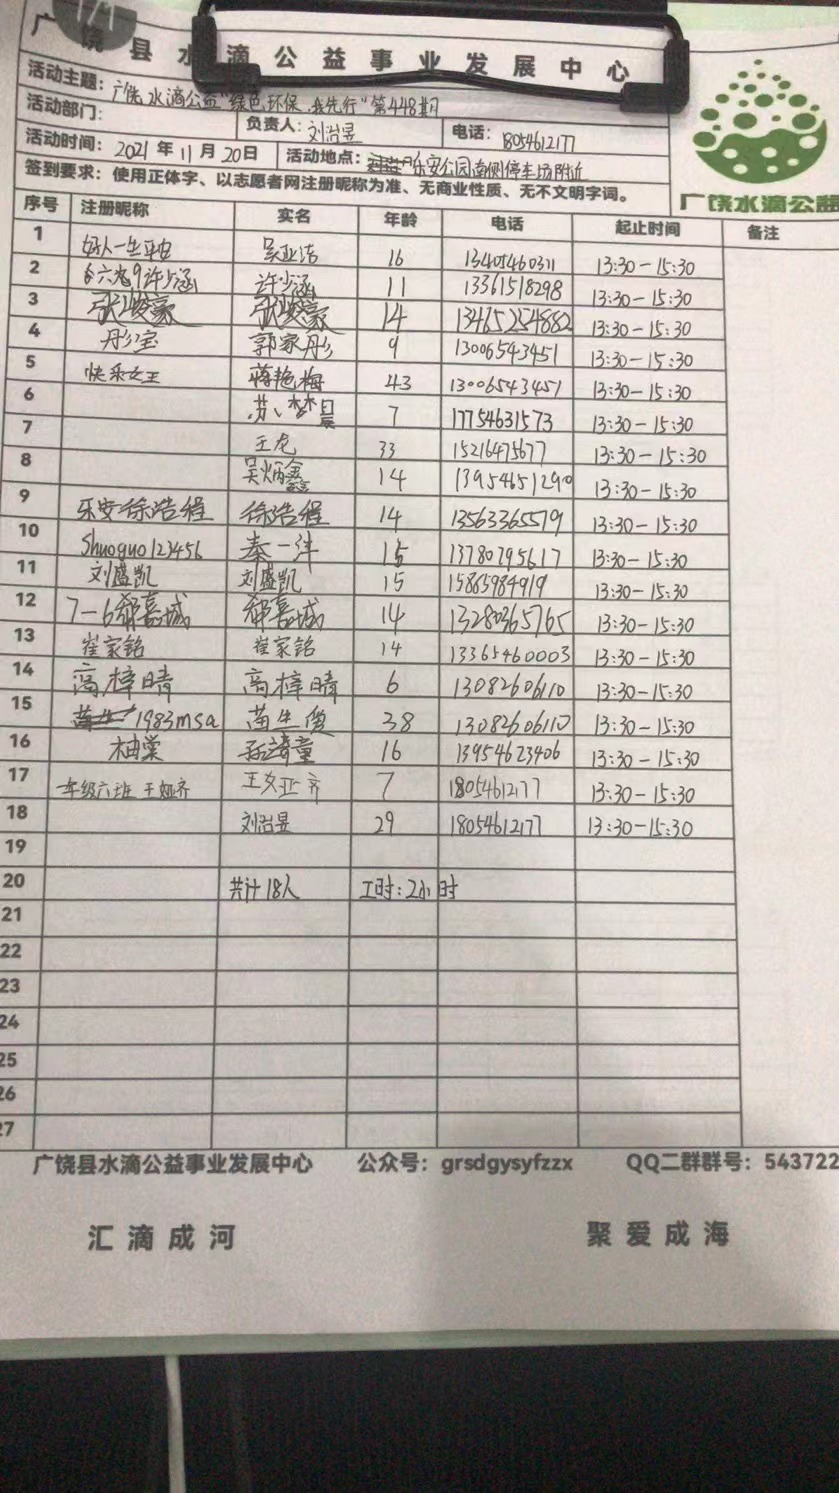 1/1
广饶县水滴公益事业发展中心
活动主题：广饶水滴公益"绿色环保，我先行"第448期
活动部门： 负责人：刘治昱 电话：18054612177
活动时间：2021年11月20日 活动地点：乐安公园南侧停车场附近
签到要求：使用正体字、以志愿者网注册昵称为准、无商业性质、无不文明字词。
广饶水滴公益
序号 注册昵称 实名 年龄 电话 起止时间 备注
1 好人一生平安 吴亚洁 16 13405460311 13:30-15:30
2 六九9许少涵 许少涵 11 13361518298 13:30-15:30
3 张峻豪 张峻豪 14 13465254882 13:30-15:30
4 彤宝 郭家彤 9 13006543451 13:30-15:30
5 快乐女王 蒋艳梅 43 13006543451 13:30-15:30
6 苏梦晨 7 17754631573 13:30-15:30
7 王龙 33 15216475677 13:30-15:30
8 吴炳鑫 14 13954651290 13:30-15:30
9 乐安徐浩程 徐浩程 14 13563365579 13:30-15:30
10 Shuoguo123456 秦一洋 15 13780795617 13:30-15:30
11 刘盛凯 刘盛凯 15 15865984919 13:30-15:30
12 7-6郗嘉城 郗嘉城 14 13280365765 13:30-15:30
13 崔家铭 崔家铭 14 13365460003 13:30-15:30
14 高梓晴 高梓晴 6 13082606110 13:30-15:30
15 1983msa 苗生俊 38 13082606110 13:30-15:30
16 柚棠 16 13954623406 13:30-15:30
17 一年级六班 王娅齐 王亚齐 7 18054612177 13:30-15:30
18 刘治昱 29 18054612177 13:30-15:30
19
20 共计18人 工时：2小时
21
22
23
24
25
26
27
广饶县水滴公益事业发展中心 公众号：grsdgysyfzzx QQ二群群号：543722
汇滴成河 聚爱成海